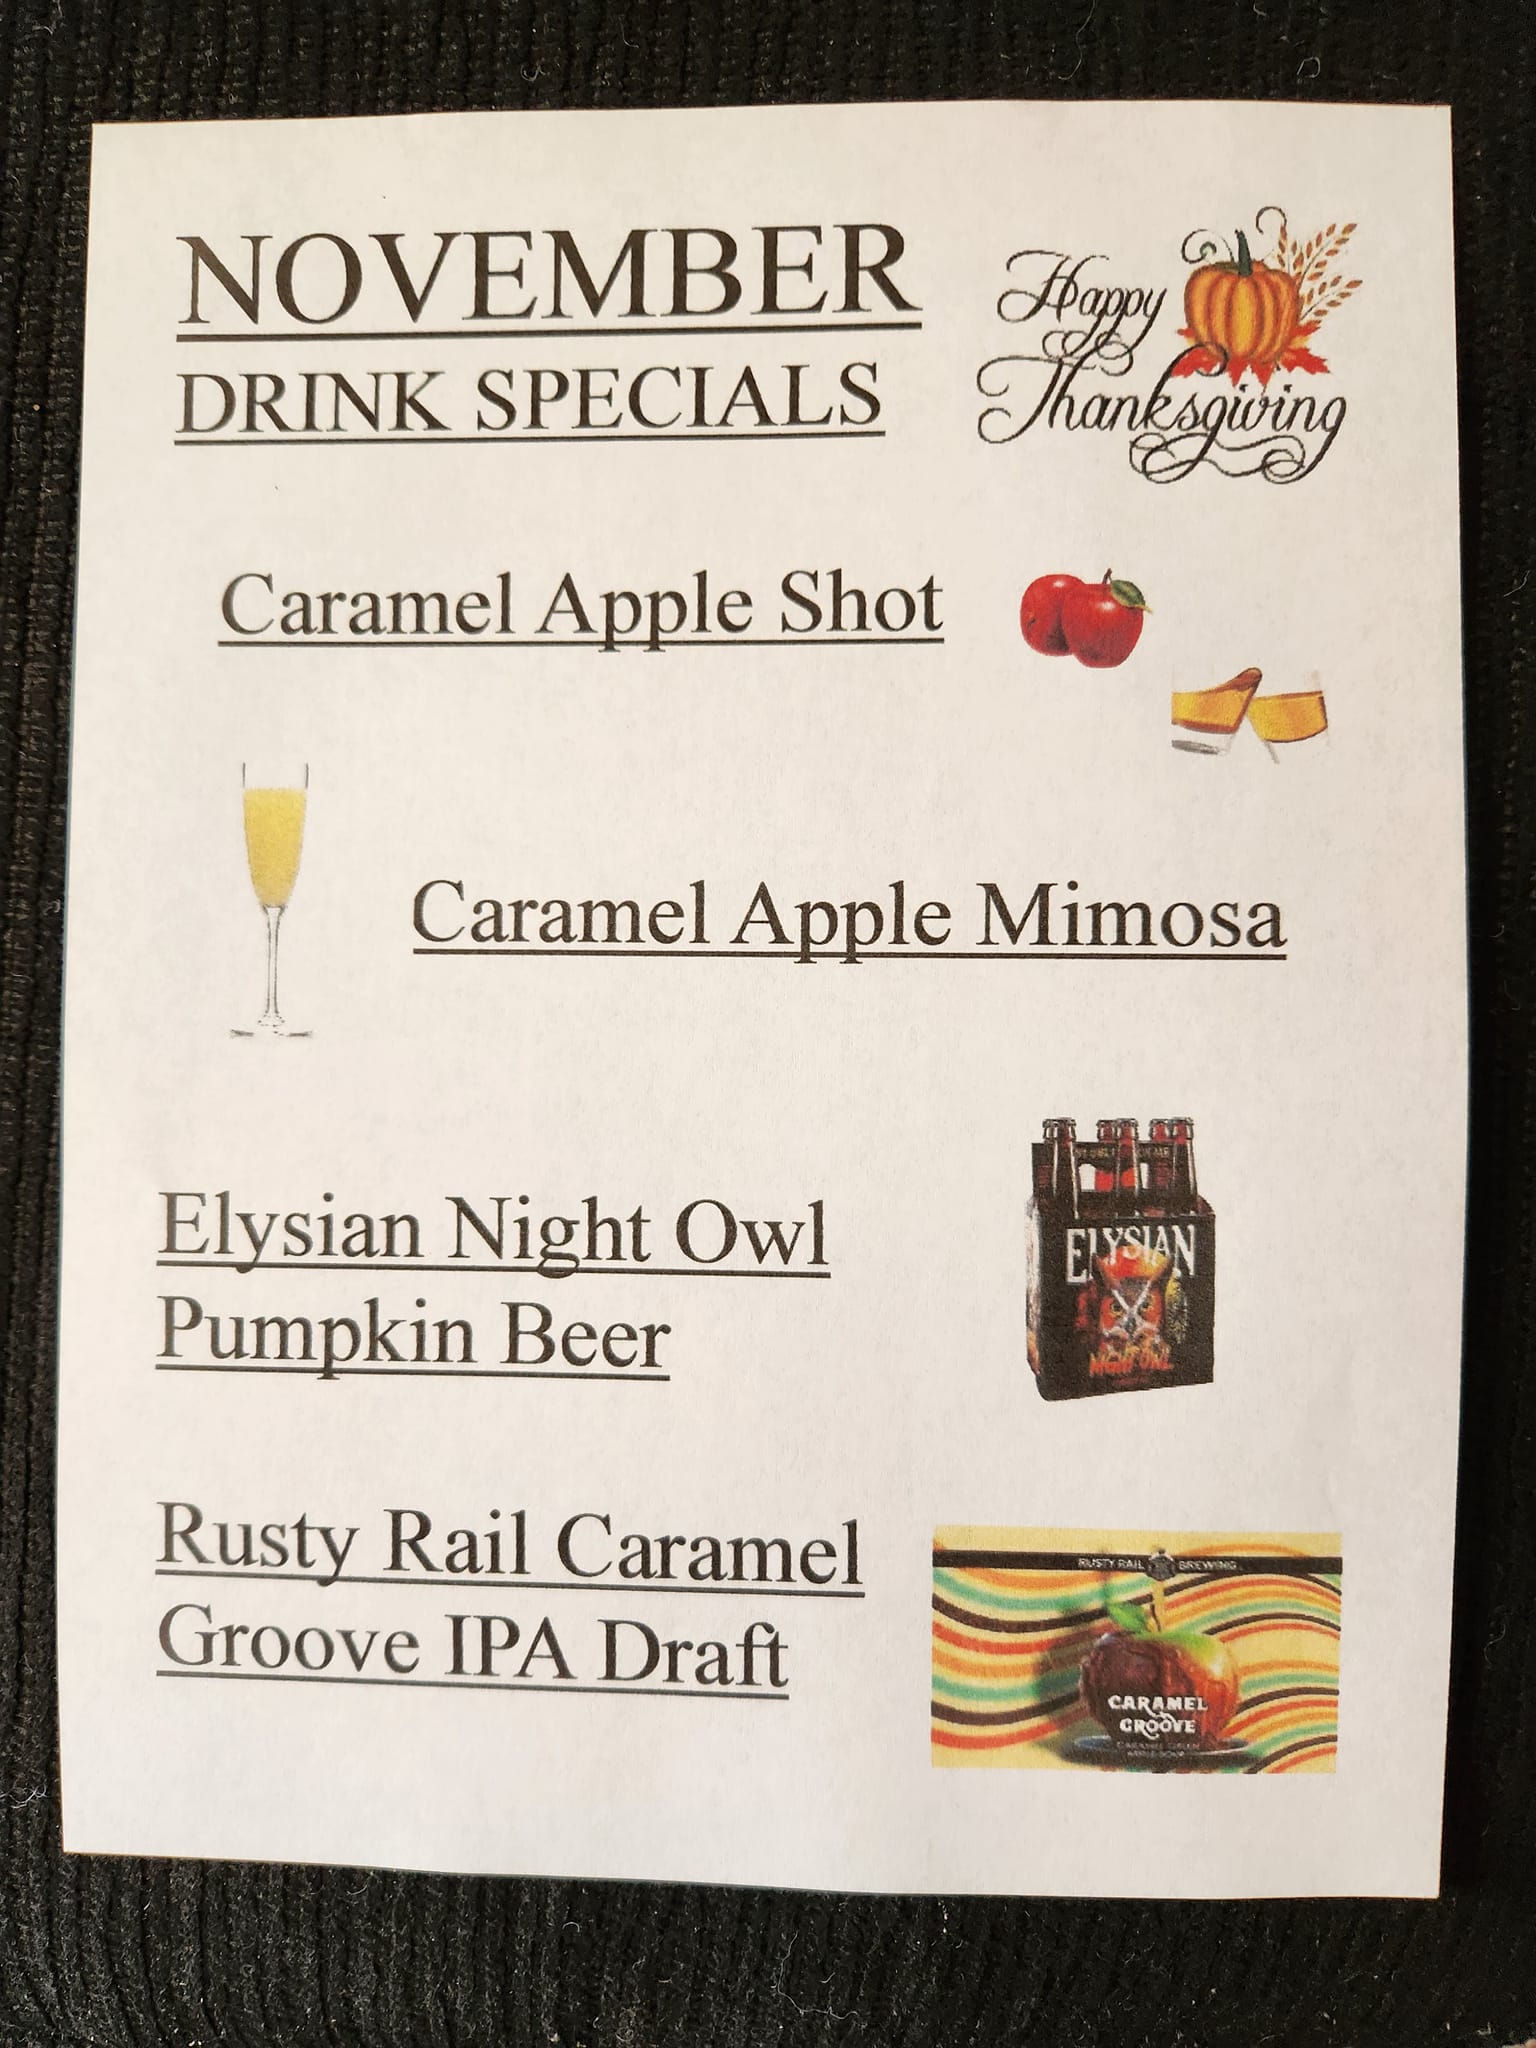 NOVEMBER
DRINK SPECIALS
Happy
Thanksgiving
Caramel Apple Shot
Caramel Apple Mimosa
Elysian Night Owl
Pumpkin Beer
ELYSIAN
NIGHT OWL
Rusty Rail Caramel
Groove IPA Draft
RUSTY RAIL BREWING
CARAMEL
GROOVE